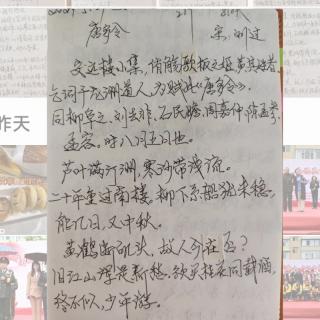 唐多令
宋·刘过
安远楼小集，侑觞歌板之姬黄其姓者，
乞词于龙洲道人，为赋此《唐多令》。
同柳阜之、刘去非、石民瞻、周嘉仲、陈孟参、
孟容。时八月五日也。
芦叶满汀洲，寒沙带浅流。
二十年重过南楼。柳下系船犹未稳，
能几日，又中秋。
黄鹤断矶头，故人今在否？
旧江山浑是新愁。欲买桂花同载酒，
终不似，少年游。
昨天